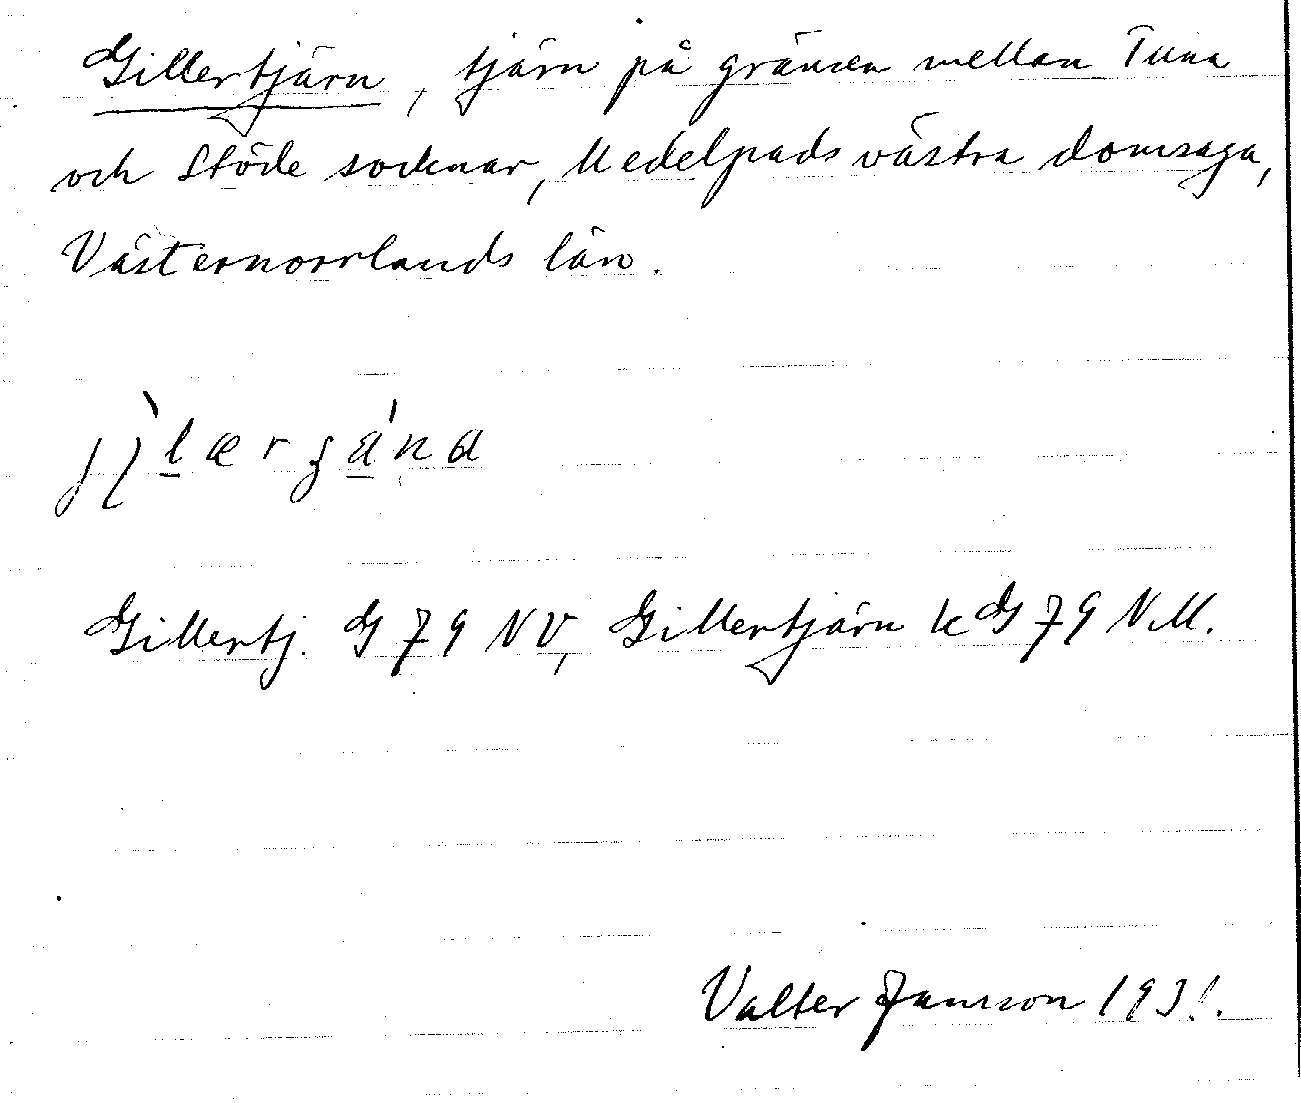 Gillertjärn, tjärn på gränsen mellan Tuna
och Stöde socknar, Medelpads västra domsaga,
Västernorrlands län.
Gillertj. G 79 NV, Gillertjärn k G 79 NM.
Valter Jansson 1931.